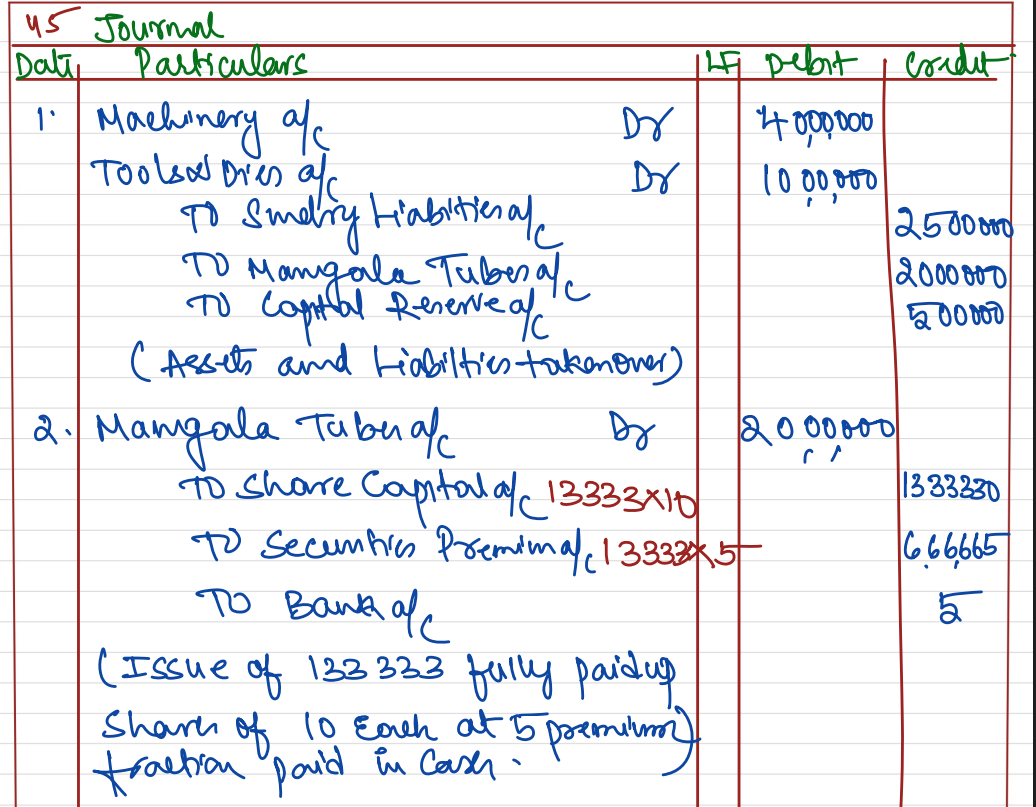 45 Journal
Date Particulars LF Debit Credit
1. Machinery a/c Dr 4000000
Tools & Dies a/c Dr 10,00,000
To Sundry Liabilities a/c 2500000
To Mangala Tubes a/c 2000000
To Capital Reserve a/c 500000
(Assets and Liabilties takenover)
2. Mangala Tubes a/c Dr 20,00,000
To Share Capital a/c 13333×10 1333330
To Securities Premium a/c 13333×5 6,66,665
To Bank a/c 5
(Issue of 133333 fully paidup
Shares of 10 Each at 5 premium)
fraction paid in Cash.